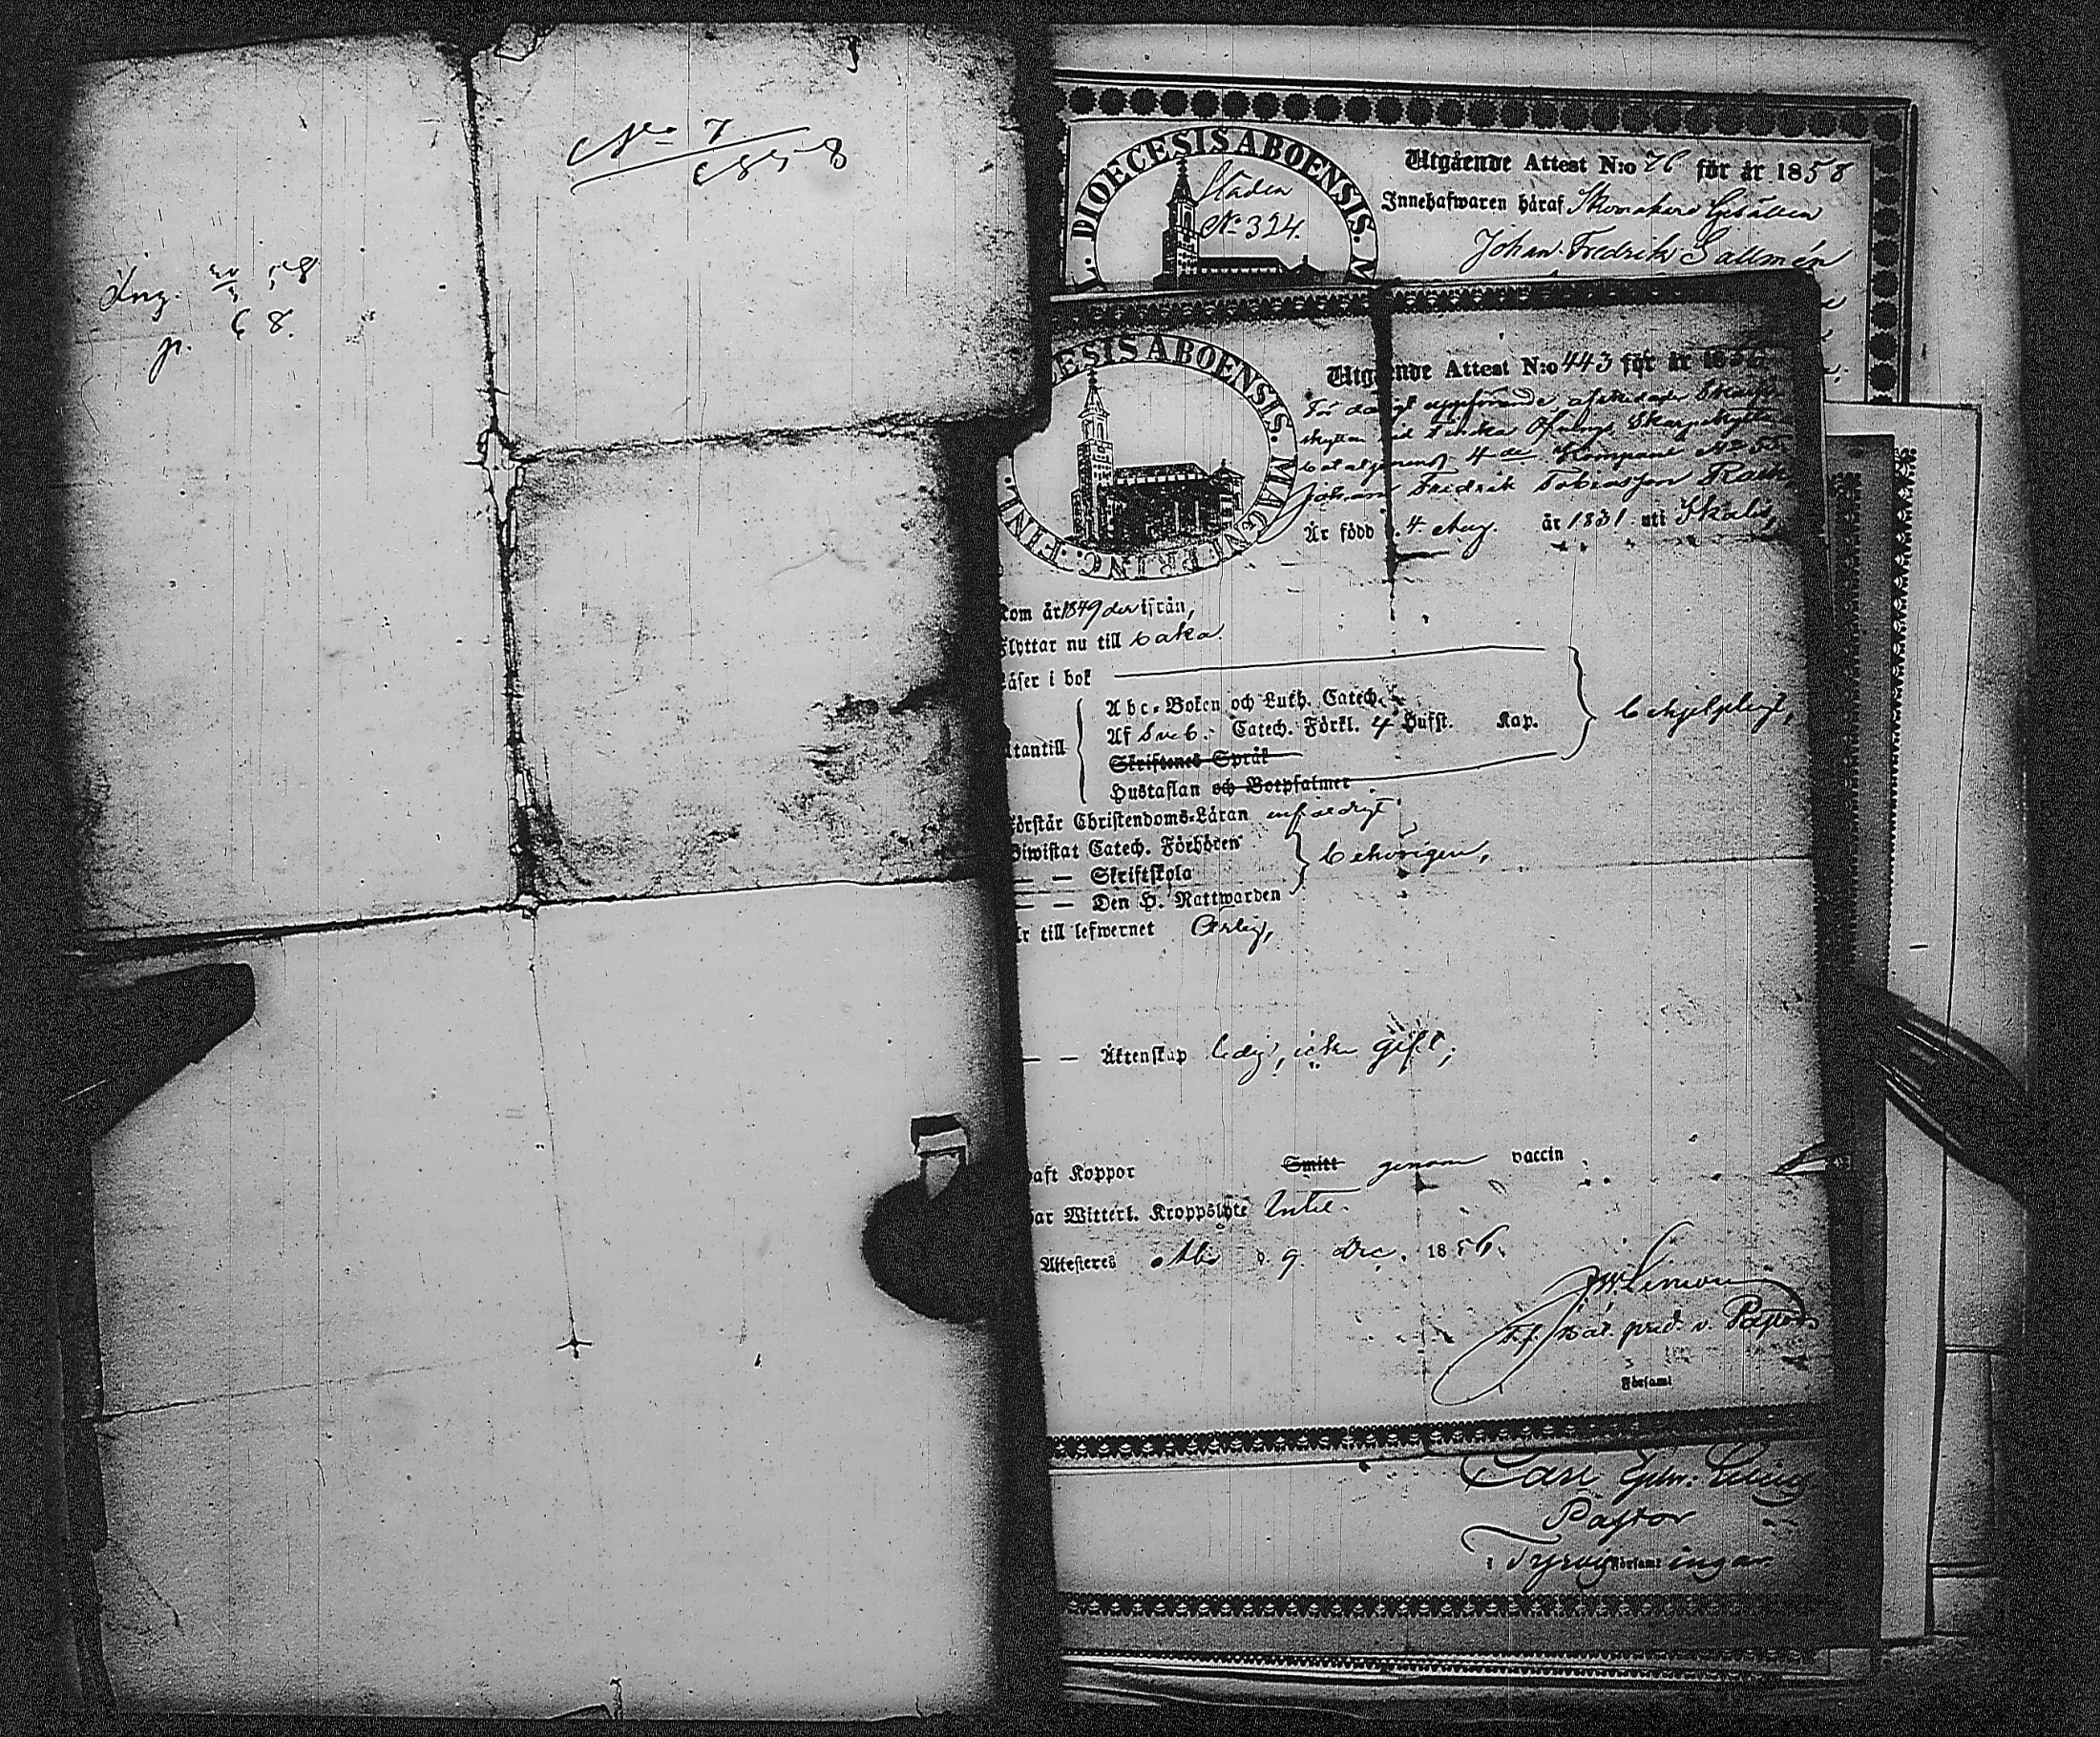 No 7
1858
Ing. 20/3 58
p. 68.
DIOECESIS ABOENSIS. M
Staden
No 324.
Utgående Attest N:o 76 för år 1858
Innehafwaren häraf Skomakare Gesällen
Johan Fredrik Sallmén
ESIS ABOENSIS. MAGNI PRINC. FINL.
Utgående Attest N:o 443 för år 1856
För dåligt uppförande afskedade Skarp-
skytten vid Finska Öfnings Skarpskytte
bataljonens 4de Kompani No 55
Johan Fridrik Tobiasson Rask
Är född d. 4 Aug. år 1831 uti Skälö,
Kom år 1849 der ifrån,
Flyttar nu till baka.
Läser i bok
Utantill
Abc-Boken och Luth. Catech.
Af Sveb. Catech. Förkl. 4 Hufst. Kap.
Skriftenes Språk
Hustaflan och Botpsalmer
behjelpligt,
Förstår Christendoms-Läran enfaldigt
Biwistat Catech. Förhören
— — Skriftskola
— — Den H. Nattwarden
behörigen,
Är till lefwernet Ärlig,
— — Äktenskap ledig, icke gift;
haft Koppor Smitt genom vaccin
Har Witterl. Kroppslyte Intet.
Attesteres Åbo d. 9 Dec. 1856.
T.f. Bat. pred. v. Pastor
Församl
Carl
Pastor
i Tyrvis Församl ingar